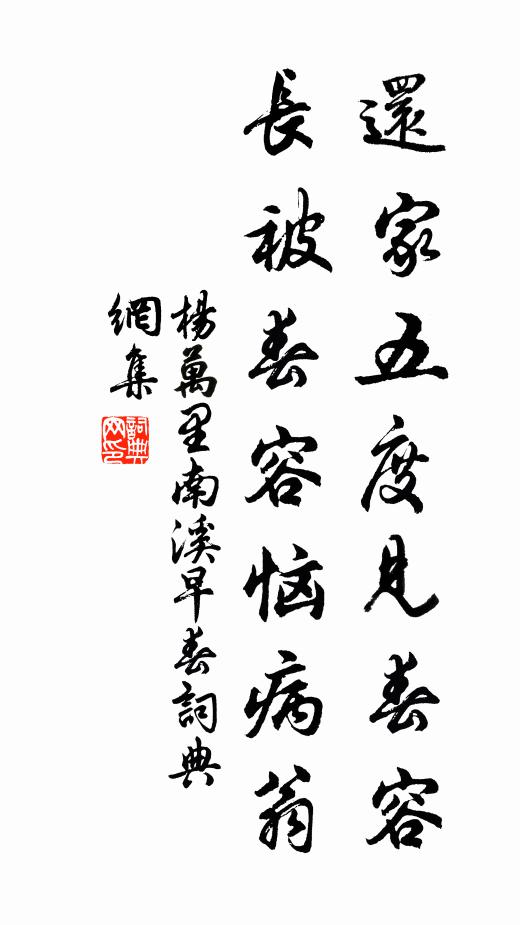 還家五度見春容
長被春容恼病翁
楊萬里南溪早春詞典
網集
詞典
网印